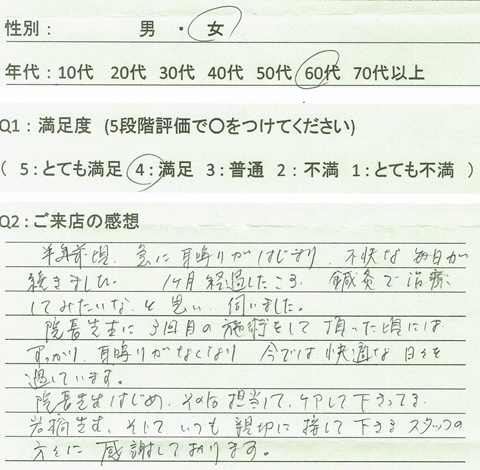 性別： 男 ・ 女
年代：10代 20代 30代 40代 50代 60代 70代以上
Q1：満足度 (5段階評価で〇をつけてください)
( 5：とても満足 4：満足 3：普通 2：不満 1：とても不満 )
Q2：ご来店の感想
半年前頃、急に耳鳴りがはじまり、不快な毎日が
続きました。 1ヶ月経過したころ、鍼灸で治療
してみたいな、と思い、伺いました。
院長先生に3回目の施術をして頂いた頃には
すっかり、耳鳴りがなくなり 今では快適な日々を
過しています。
院長先生はじめ、その後担当して、ケアして下さってる
岩橋先生、そして いつも親切に接して下さる スタッフの
方々に感謝しております。